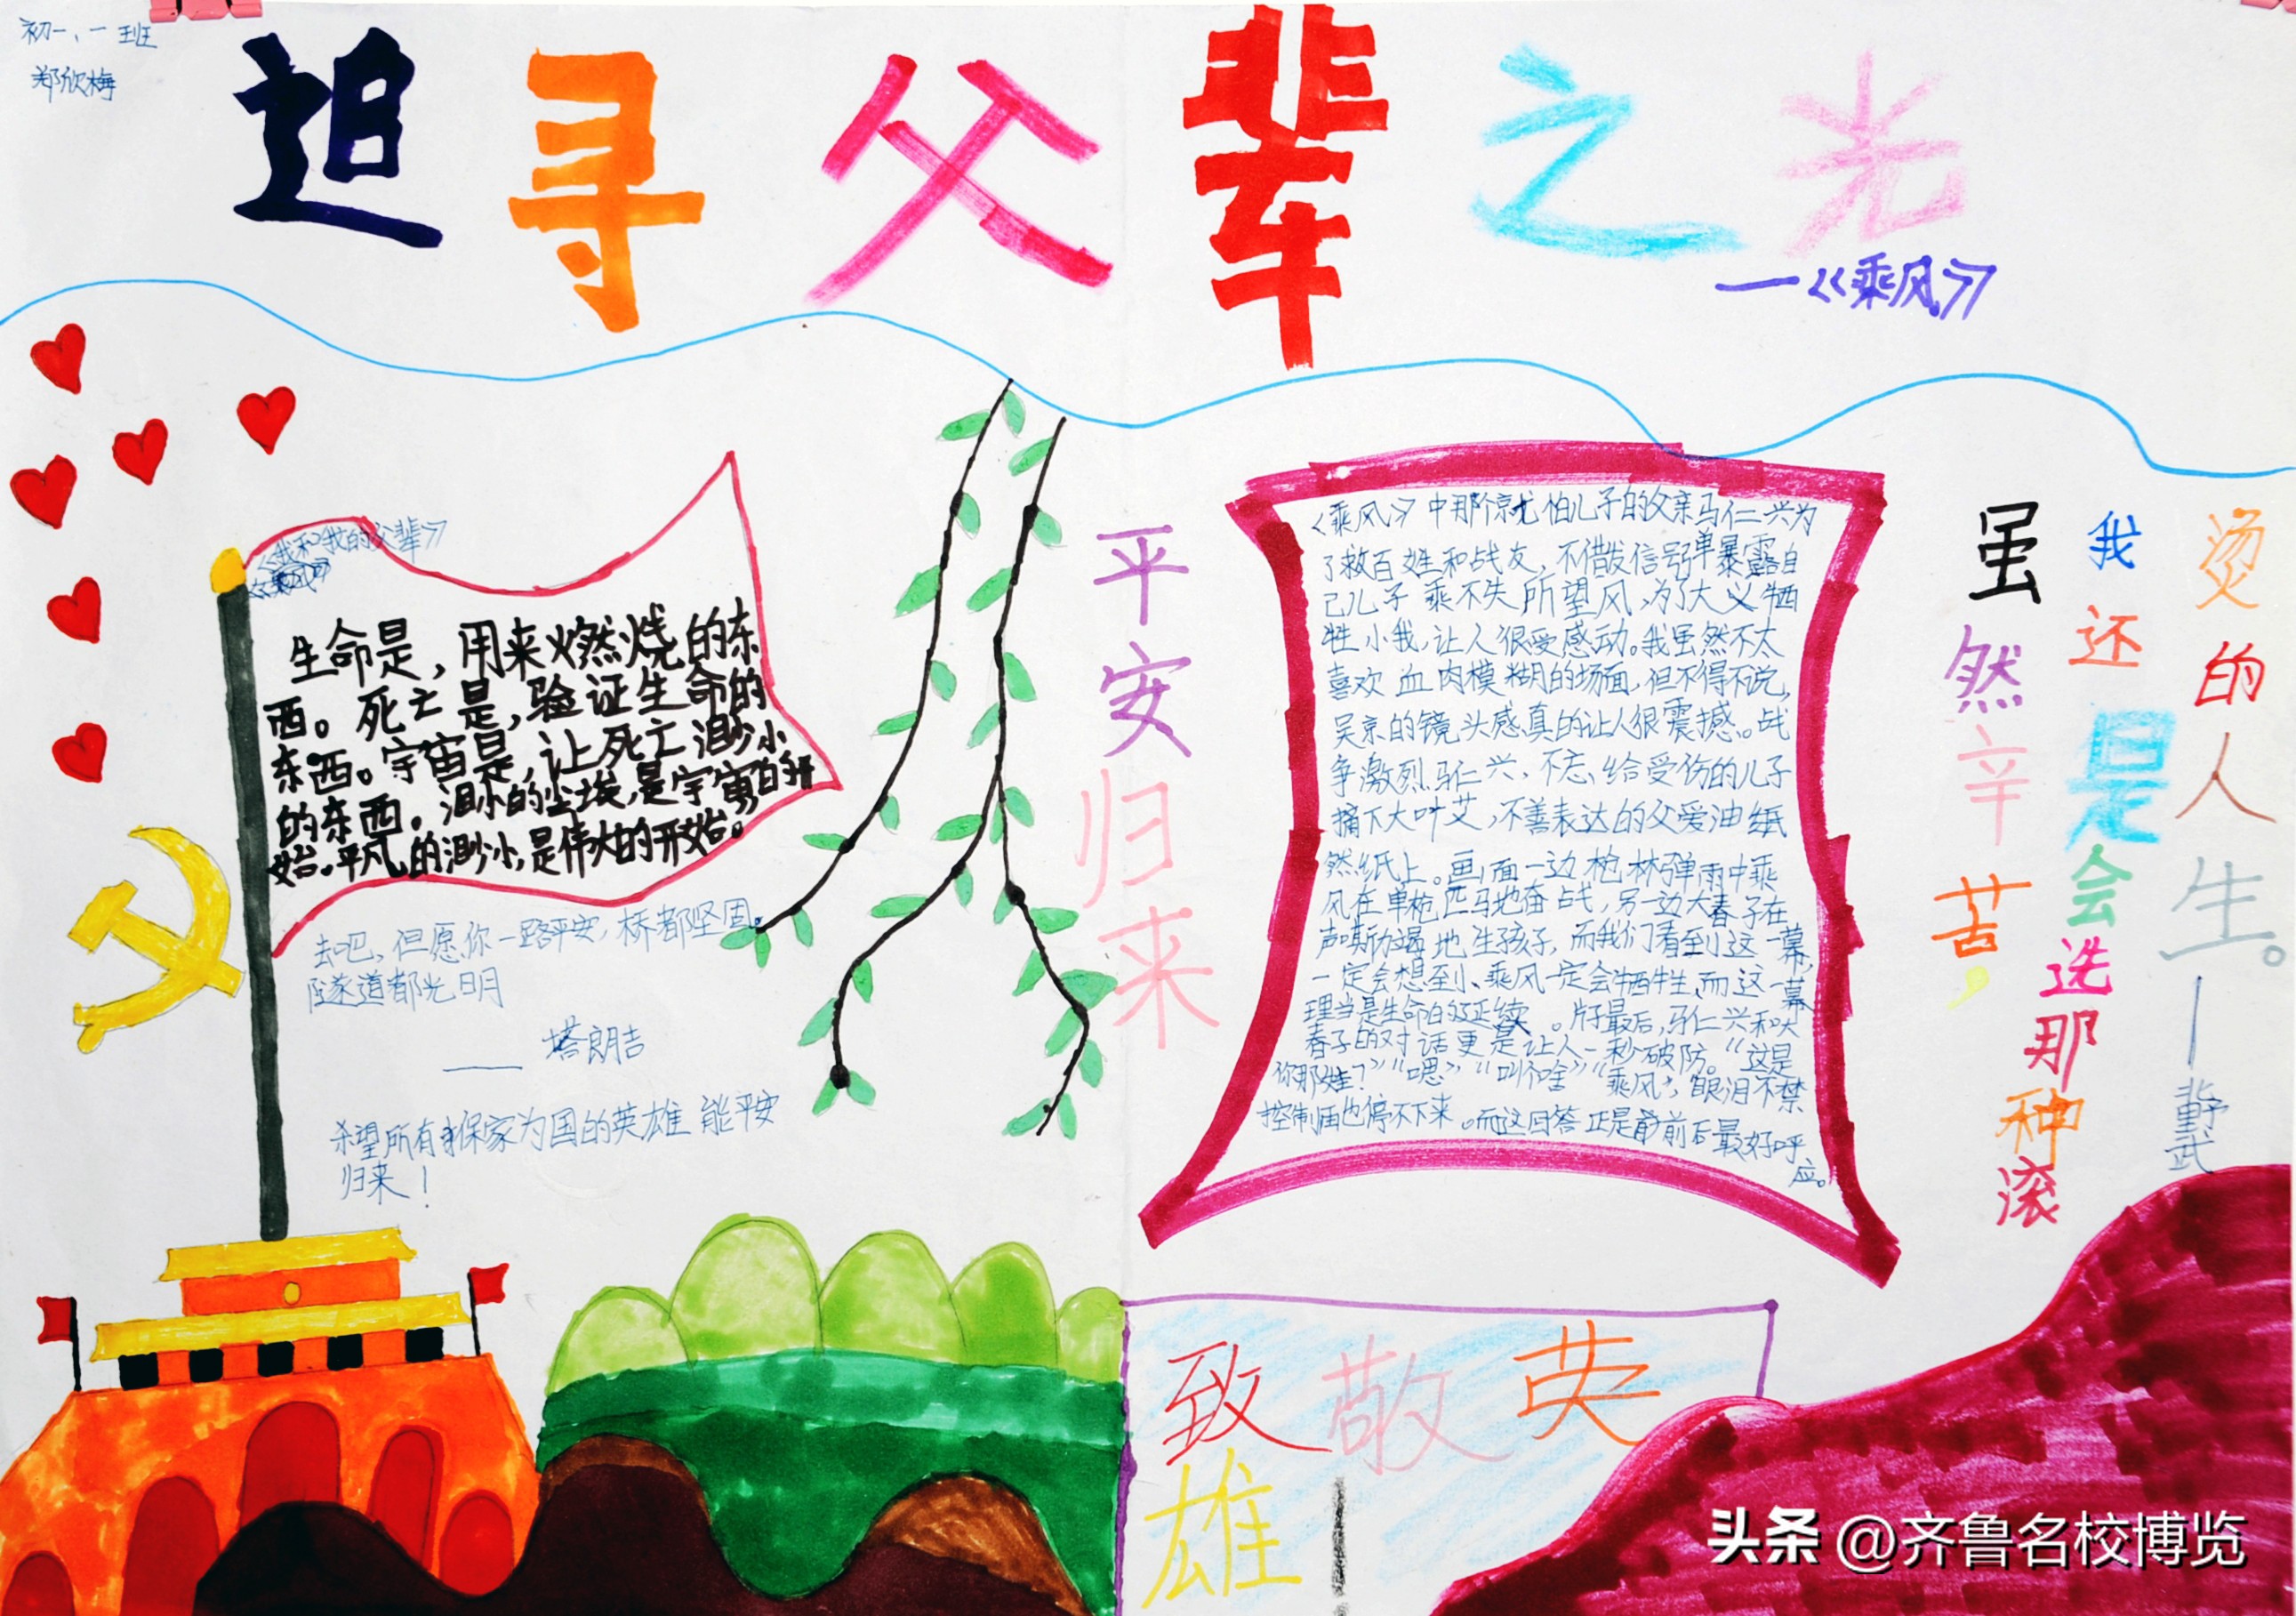 初一、一班
郑欣梅
追寻父辈之光
——《乘风》
《我和我的父辈》
《乘风》
生命是，用来燃烧的东
西。死亡是，验证生命的
东西。宇宙是，让死亡渺小
的东西。渺小的尘埃，是宇宙的开
始。平凡的渺小，是伟大的开始。
去吧，但愿你一路平安，桥都坚固。
隧道都光明
——塔朗吉
希望所有保家为国的英雄能平安
归来！
平安归来
《乘风》中那个就怕儿子的父亲马仁兴为
了救百姓和战友，不借发信号弹暴露自
己儿子乘不失所望风，为了大义牺
牲小我，让人很受感动。我虽然不太
喜欢血肉模糊的场面，但不得不说，
吴京的镜头感真的让人很震撼。战
争激烈马仁兴，不忘给受伤的儿子
摘下大叶艾，不善表达的父爱油纸
然纸上。画面一边枪林弹雨中乘
风在单枪匹马地奋战，另一边大春子在
声嘶力竭地生孩子，而我们看到这一幕，
一定会想到、乘风一定会牺牲，而这一幕
理当是生命的延续。片子最后，马仁兴和大
春子的对话更是让人一秒破防。“这是
你那娃？”“嗯”“叫个啥”“乘风”，眼泪不禁
控制面也停不下来。而这回答正是最前后最好呼
应。
虽然辛苦，
我还是会选那种滚
烫的人生。——北野武
致敬英
雄
头条 @齐鲁名校博览